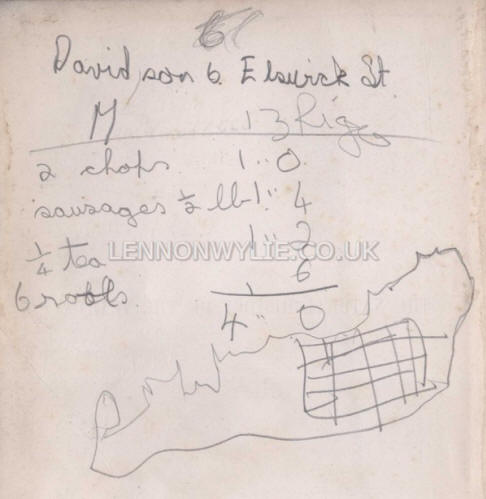 6
Davidson 6. Elswick St.
M 13
2 chops 1 .. 0
sausages ½ lb 1 .. 4
¼ tea 1 .. 2
6 6
4 .. 0
LENNONWYLIE.CO.UK